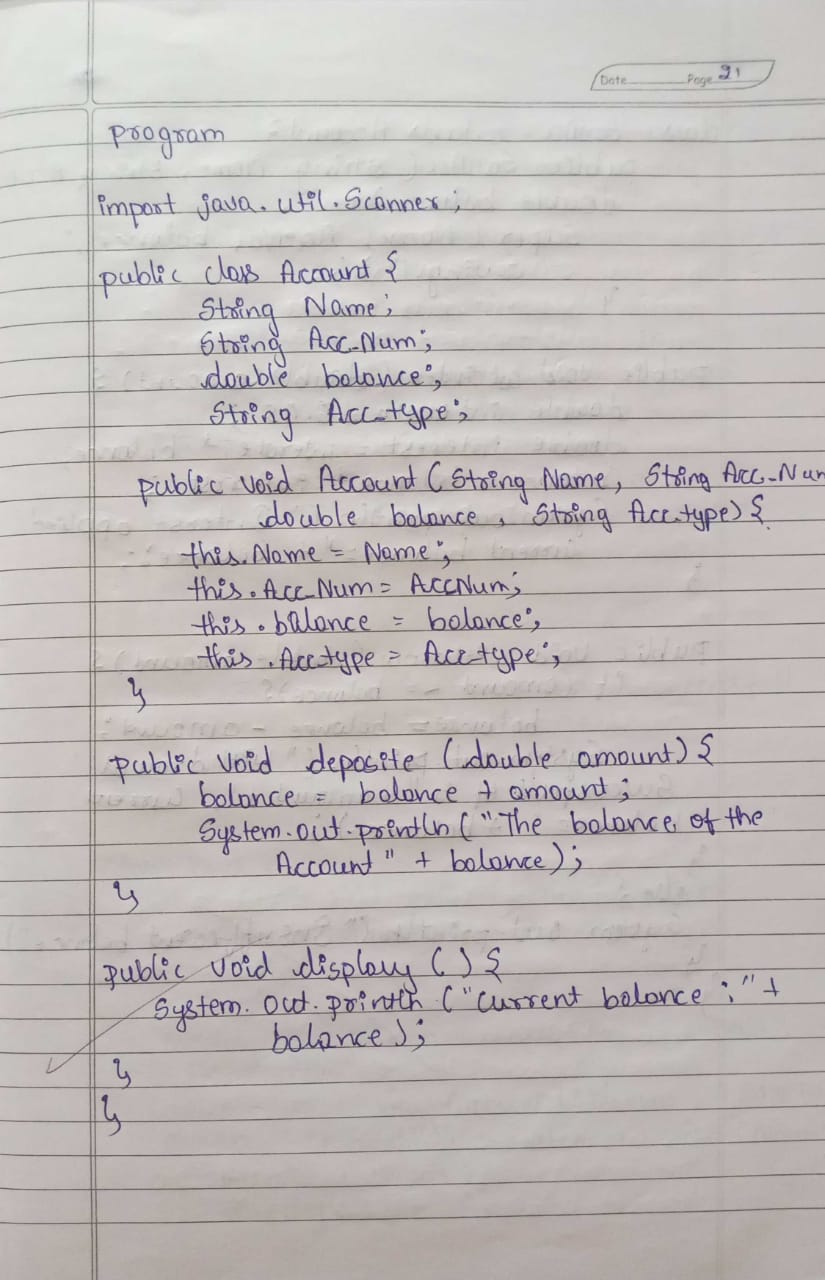 Date Page 21
program
import java.util.Scanner;
public class Account {
String Name;
String Acc_Num;
double balance;
String Acc_type;
public void Account (String Name, String Acc_Num
double balance, String Acc_type) {
this.Name = Name;
this.Acc_Num = AccNum;
this.balance = balance;
this.Acc_type = Acc_type;
}
public void deposite (double amount) {
balance = balance + amount;
System.out.println ("The balance of the
Account" + balance);
}
public void display () {
System.out.println ("Current balance :" +
balance);
}
}